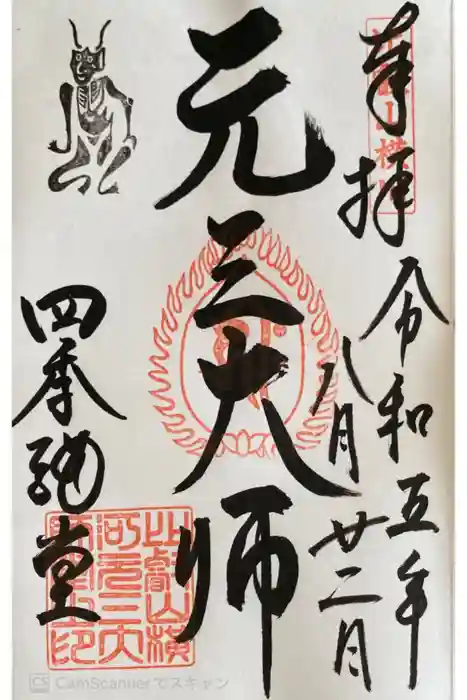 奉拝
令和五年
八月
廿二日
元三大師
四季講堂
比叡山横
CS CamScannerでスキャン